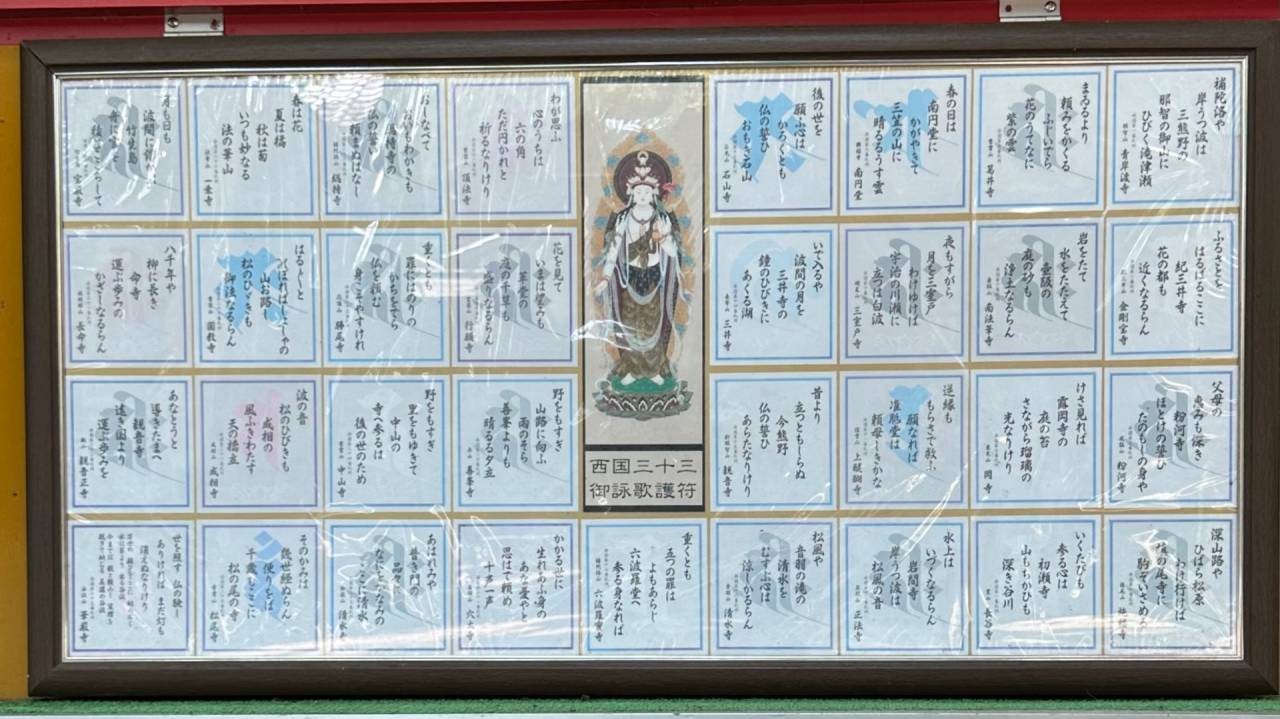 補陀洛や
岸うつ波は
三熊野の
那智の御山に
ひびく滝津瀬
青岸渡寺
ふるさとを
はるばるここに
紀三井寺
花の都も
近くなるらん
金剛宝寺
父母の
恵みも深き
粉河寺
ほとけの誓ひ
たのもしの身や
粉河寺
深山路や
ひばら松原
わけ行けば
槙の尾寺に
駒ぞいさめる
まゐるより
頼みをかくる
ふじいでら
花のうてなに
紫の雲
葛井寺
岩をたて
水をたたえて
壷阪の
庭の砂も
浄土なるらん
南法華寺
けさ見れば
露岡寺の
庭の苔
さながら瑠璃の
光なりけり
岡寺
いくたびも
参る心は
初瀬寺
山もちかひも
深き谷川
長谷寺
春の日は
南円堂に
かがやきて
三笠の山に
晴るるうす雲
南円堂
夜もすがら
月を三室戸
わけゆけば
宇治の川瀬に
立つは白波
三室戸寺
逆縁も
もらさで救ふ
願なれば
准胝堂は
頼母しきかな
上醍醐寺
水上は
いづくなるらん
岩間寺
岸うつ波は
松風の音
正法寺
後の世を
願ふ心は
かろくとも
仏の誓ひ
おもき石山
石山寺
いで入るや
波間の月を
三井寺の
鐘のひびきに
あくる湖
三井寺
昔より
立つともしらぬ
今熊野
仏の誓ひ
あらたなりけり
観音寺
松風や
音羽の滝の
清水を
むすぶ心は
涼しかるらん
清水寺
西国三十三
御詠歌護符
重くとも
五つの罪は
よもあらじ
六波羅堂へ
参る身なれば
六波羅蜜寺
わが思ふ
心のうちは
六の角
ただ円かれと
祈るなりけり
頂法寺
花を見て
いまは望みも
革堂の
庭の千草も
盛りなるらん
行願寺
野をもすぎ
山路に向ふ
雨のそら
善峯よりも
晴るる夕立
善峯寺
かかる世に
生れあふ身の
あな憂やと
思はで頼め
十声一声
穴太寺
おしなべて
総持寺の
仏の誓ひ
頼まぬはなし
総持寺
重くとも
罪にはのりの
かちをでら
仏を頼む
身こそやすけれ
勝尾寺
野をもすぎ
里をもゆきて
中山の
寺へ参るは
後の世のため
中山寺
あはれみや
普き門の
品々に
なにをかなみの
ここに清水
清水寺
春は花
夏は橘
秋は菊
いつも妙なる
法の華山
一乗寺
はるばると
のぼればしょしゃの
山おろし
松のひびきも
御法なるらん
圓教寺
波の音
松のひびきも
成相の
風ふきわたす
天の橋立
成相寺
そのかみは
幾世経ぬらん
便りをば
千歳もここに
松の尾の寺
松尾寺
月も日も
波間に浮ぶ
竹生島
舟に宝を
積むここちして
宝厳寺
八千年や
柳に長き
命寺
運ぶ歩みの
かざしなるらん
長命寺
あなとうと
導きたまへ
観音寺
遠き国より
運ぶ歩みを
観音正寺
世を照す 仏の験し
ありければ まだ灯も
消えぬなりけり
華厳寺